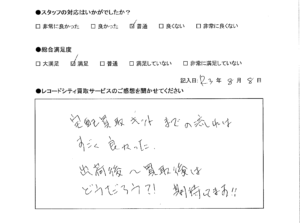 ●スタッフの対応はいかがでしたか？
□非常に良かった □良かった ☑普通 □良くない □非常に良くない
●総合満足度
□大満足 ☑満足 □普通 □満足していない □非常に満足していない
記入日：R3年8月8日
●レコードシティ買取サービスのご感想を聞かせてください
宅配買取キットまでの流れは
すごく良かった.
出荷後〜買取後は
どうだろう?! 期待してます!!